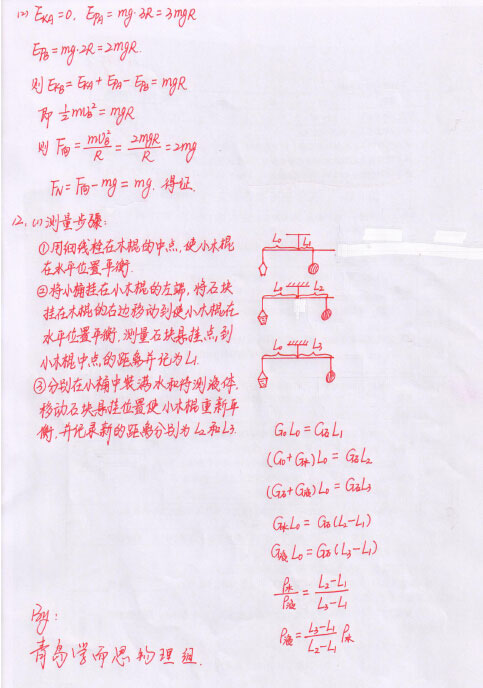 (2) E_KA=0. E_PA=mg·3R=3mgR
E_PB=mg·2R=2mgR.
则 E_KB=E_KA+E_PA-E_PB=mgR
即 ½mv_B²=mgR
则 F向=mv_B²/R=2mgR/R=2mg
F_N=F向-mg=mg. 得证.
12. (1)测量步骤:
①用细线栓在木棍的中点,使小木棍
在水平位置平衡.
②将小桶挂在小木棍的左端,将石块
挂在木棍的右边移动到使小木棍在
水平位置平衡.测量石块悬挂点到
小木棍中点的距离并记为L₁.
③分别在小桶中装满水和待测液体.
移动石块悬挂位置使小木棍重新平
衡,并记录新的距离分别为L₂和L₃.
L₀ L₁
L₀ L₂
L₀ L₃
G₀L₀=G石L₁
(G₀+G水)L₀=G石L₂
(G石+G液)L₀=G石L₃
G水L₀=G石(L₂-L₁)
G液L₀=G石(L₃-L₁)
ρ水/ρ液=L₂-L₁/L₃-L₁
ρ液=L₃-L₁/L₂-L₁ρ水
By:
青岛学而思物理组.